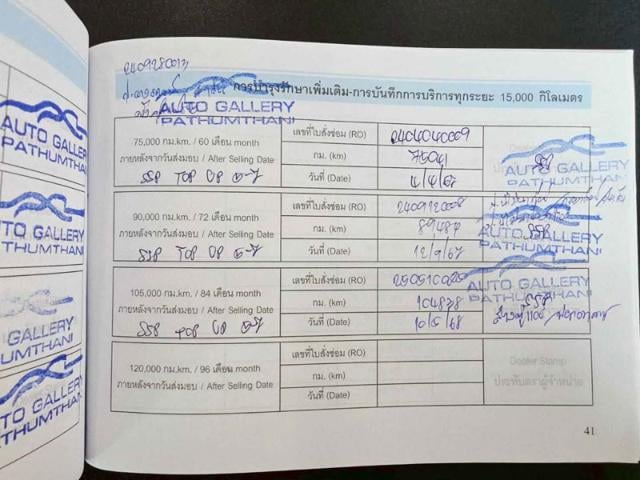 AUTO GALLERY
PATHUMTHANI
GALLERY
UMTHANI
AUTO GALLERY
PATHUMTHANI
2409280013
การบำรุงรักษาเพิ่มเติม-การบันทึกการบริการทุกระยะ 15,000 กิโลเมตร
AUTO GALLERY
PATHUMTHANI
75,000 กม.km. / 60 เดือน month
ภายหลังจากวันส่งมอบ / After Selling Date
SSP TOP UP
เลขที่ใบสั่งซ่อม (RO) 2404040009
กม. (km) 75041
วันที่ (Date) 4/4/67
AUTO GALLERY
PATHUMTHANI
90,000 กม./km. / 72 เดือน month
ภายหลังจากวันส่งมอบ / After Selling Date
SSP TOP UP
เลขที่ใบสั่งซ่อม (RO) 2409120008
กม. (km) 89487
วันที่ (Date) 12/9/67
AUTO GALLERY
PATHUMTHANI
105,000 กม./km. / 84 เดือน month
ภายหลังจากวันส่งมอบ / After Selling Date
SSP TOP UP
เลขที่ใบสั่งซ่อม (RO)
กม. (km) 104878
วันที่ (Date) 10/5/68
AUTO GALLERY
PATHUMTHANI
120,000 กม./km. / 96 เดือน month
ภายหลังจากวันส่งมอบ / After Selling Date
เลขที่ใบสั่งซ่อม (RO)
กม. (km)
วันที่ (Date)
Dealer Stamp
ประทับตราผู้จำหน่าย
41